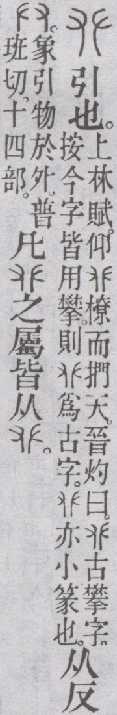 𠬜 引也。上林賦。仰𠬜橑而捫天。晉灼曰。𠬜古攀字。
按今字皆用攀。則𠬜爲古字。𠬜亦小篆也。从反
𠬞。象引物於外。普
班切。十四部。凡𠬜之屬皆从𠬜。